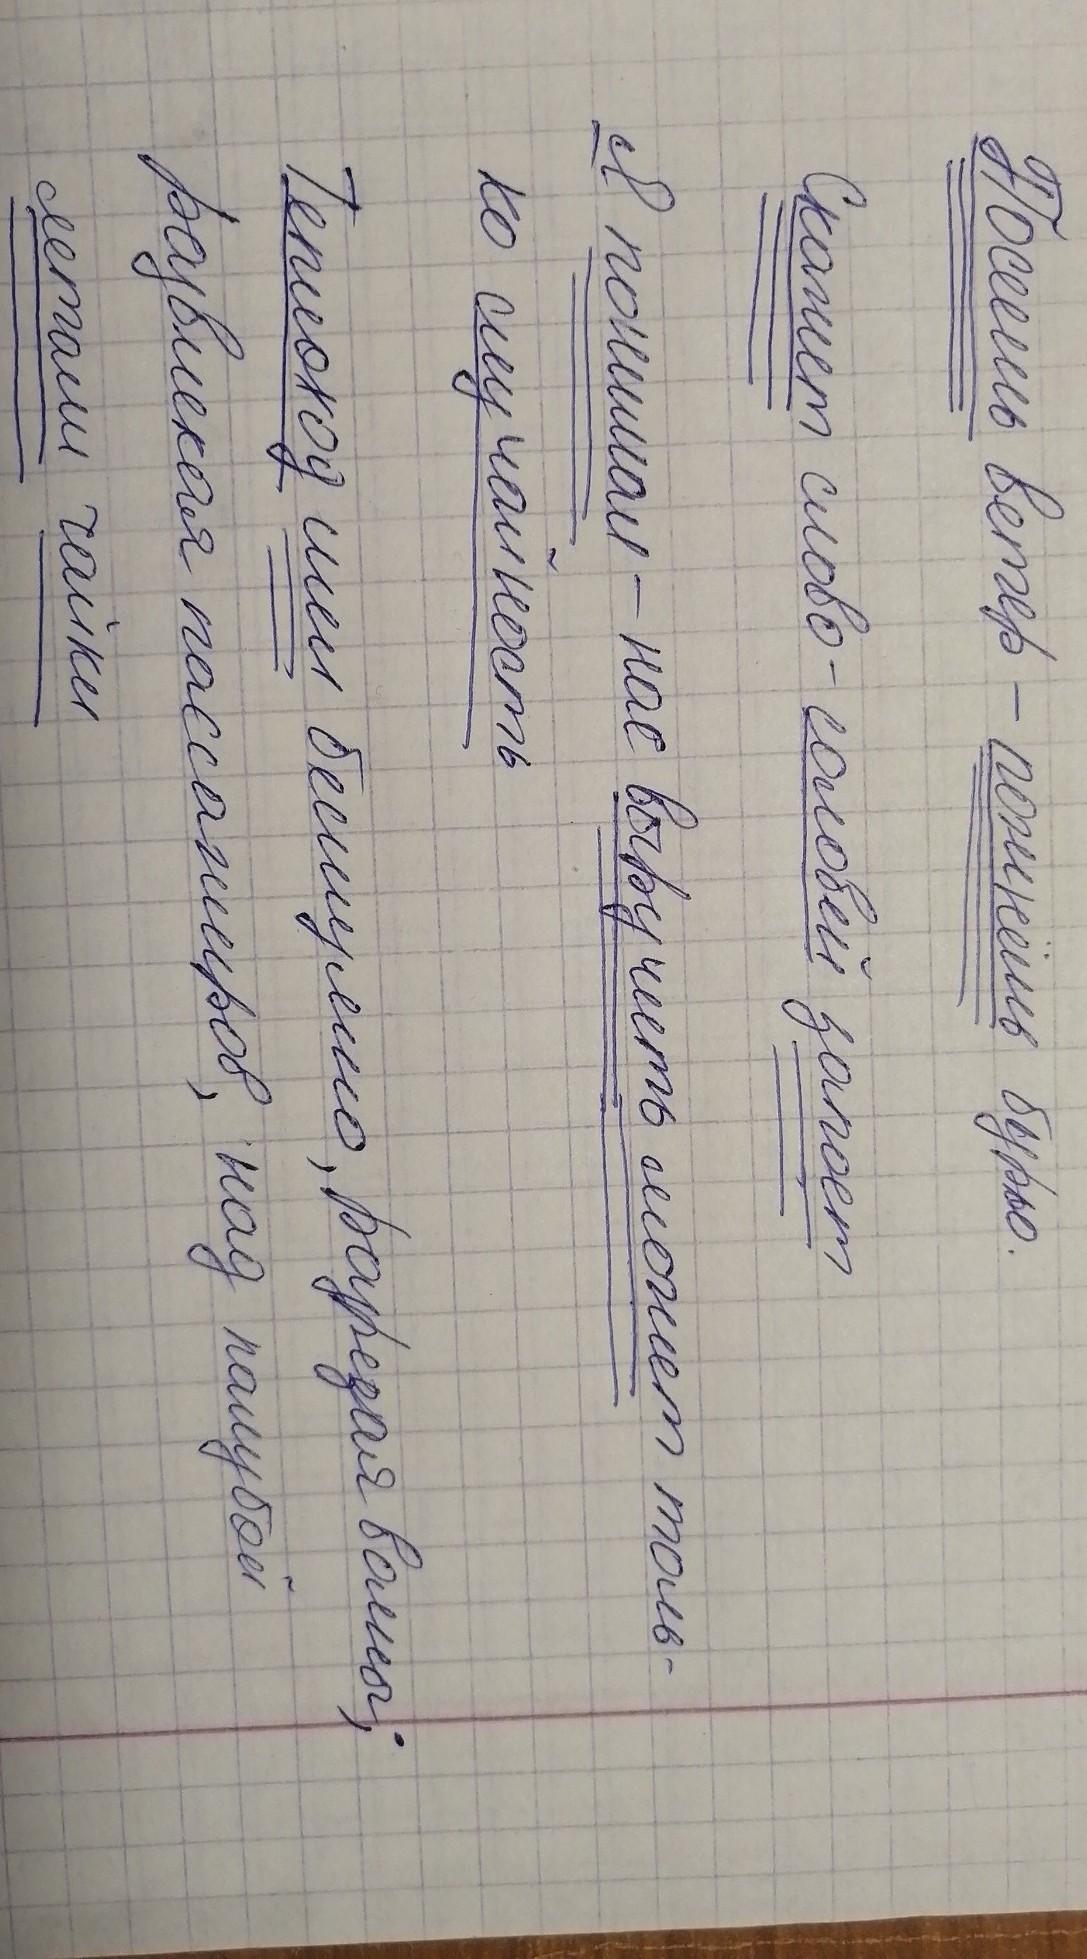 Посеешь ветер – пожнёшь бурю.
Скажет слово - соловей запоет
Я понимал – нас выручить может толь-
ко случайность
Теплоход шел бесшумно, разрезая волны;
развлекая пассажиров, над палубой
летали чайки